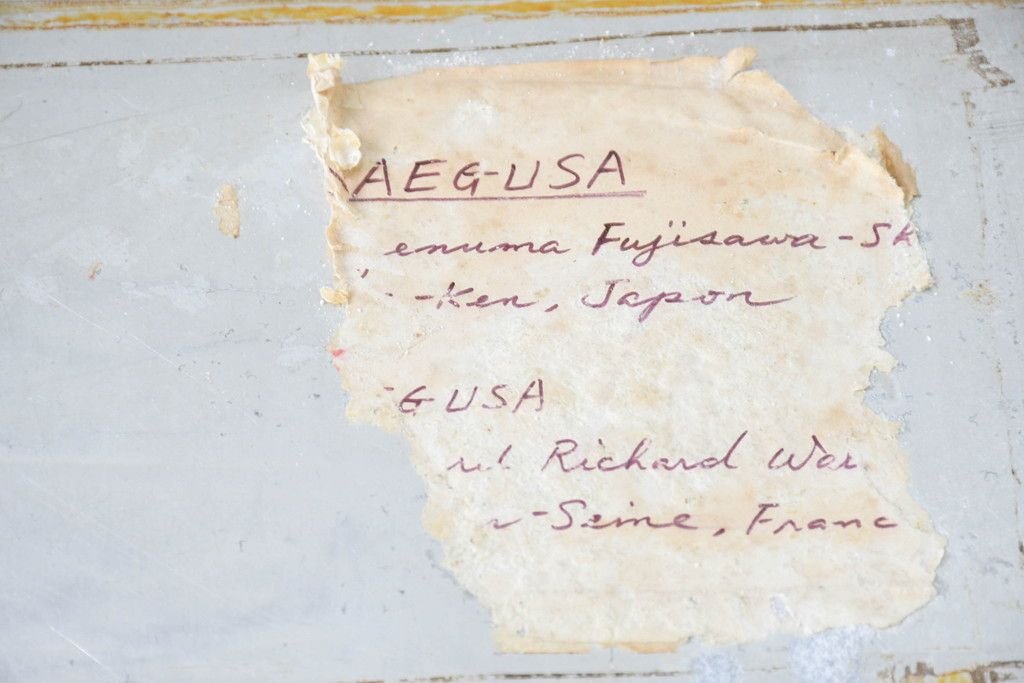 AEG-USA
enuma Fujisawa-Sh
-Ken, Japon
G-USA
Richard War
-Seine, Franc